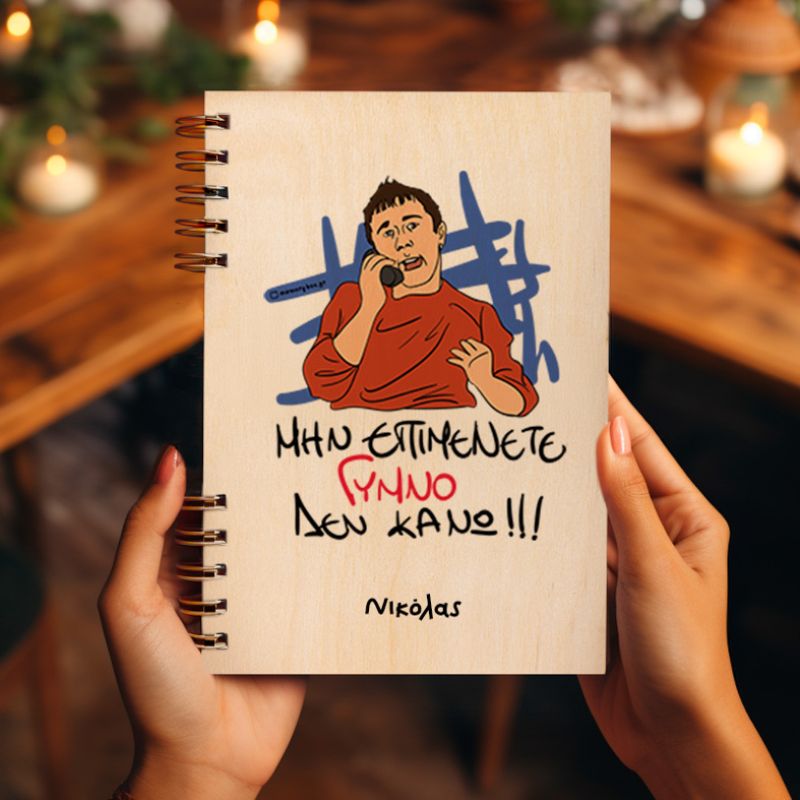 memorybox.gr
ΜΗΝ ΕΠΙΜΕΝΕΤΕ
ΓΥΜΝΟ
ΔΕΝ ΚΑΝΩ!!!
Νικόλας